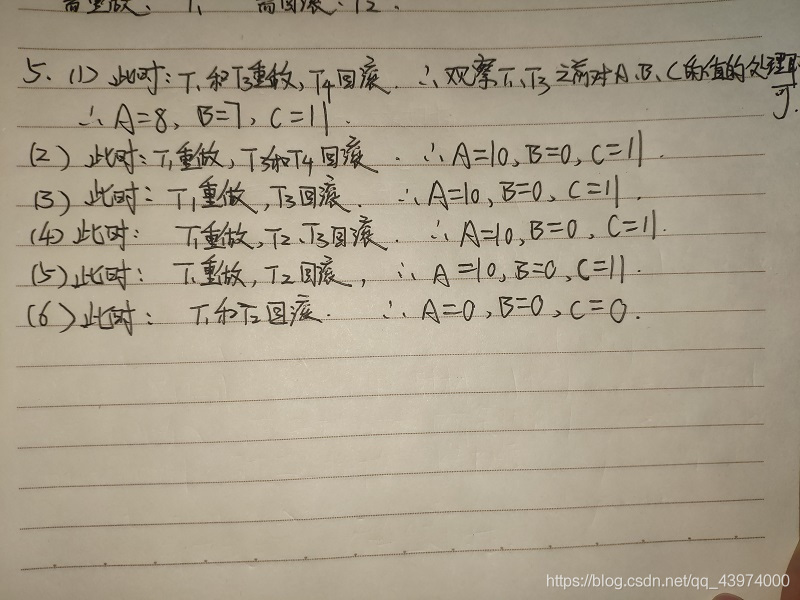 需重做: T1 需回滚: T2.
5. (1) 此时: T1和T3重做, T4回滚. ∴观察T1、T3之前对A、B、C的值的处理即可.
∴A=8, B=7, C=11.
(2) 此时: T1重做, T3和T4回滚. ∴A=10, B=0, C=11.
(3) 此时: T1重做, T3回滚. ∴A=10, B=0, C=11.
(4) 此时: T1重做, T2、T3回滚. ∴A=10, B=0, C=11.
(5) 此时: T1重做, T2回滚, ∴A=10, B=0, C=11.
(6) 此时: T1和T2回滚. ∴A=0, B=0, C=0.
https://blog.csdn.net/qq_43974000